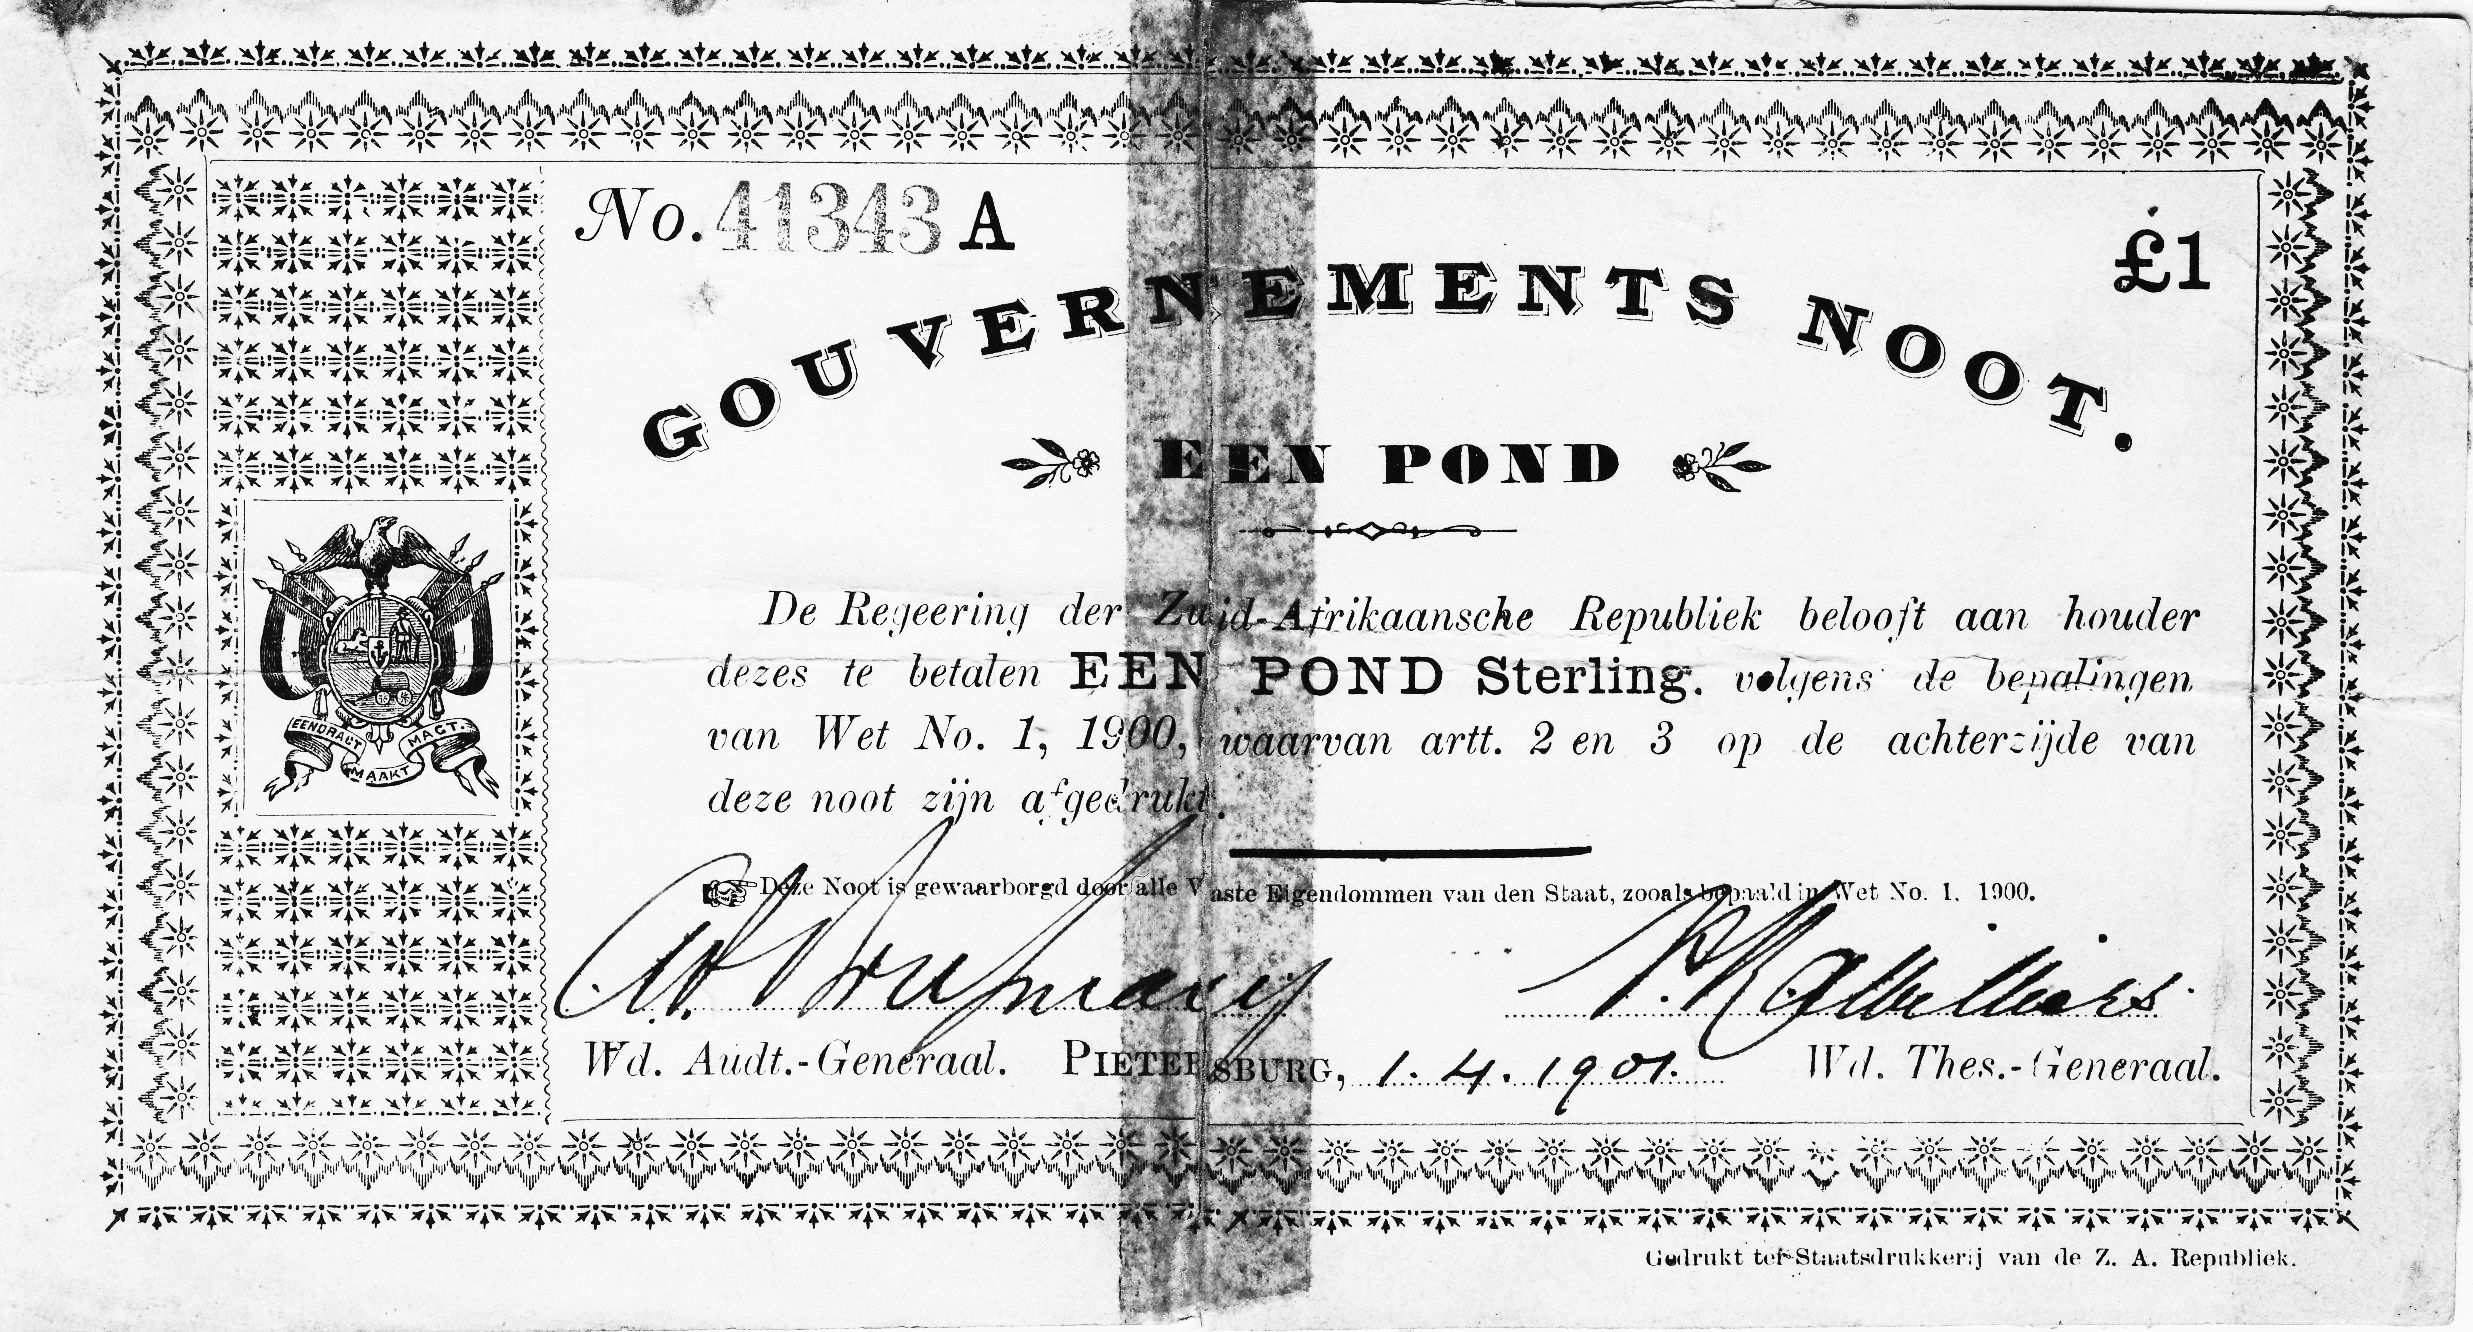 No. 41343 A
£1
GOUVERNEMENTS NOOT.
EEN POND
De Regeering der Zuid-Afrikaansche Republiek belooft aan houder
dezes te betalen EEN POND Sterling. volgens de bepalingen
van Wet No. 1, 1900, waarvan artt. 2 en 3 op de achterzijde van
deze noot zijn afgedrukt.
EENDRACT MAAKT MAGT.
Deze Noot is gewaarborgd door alle Vaste Eigendommen van den Staat, zooals bepaald in Wet No. 1. 1900.
Wd. Audt.-Generaal. PIETERSBURG, 1.4.1901. Wd. Thes.-Generaal.
Gedrukt ter Staatsdrukkerij van de Z. A. Republiek.